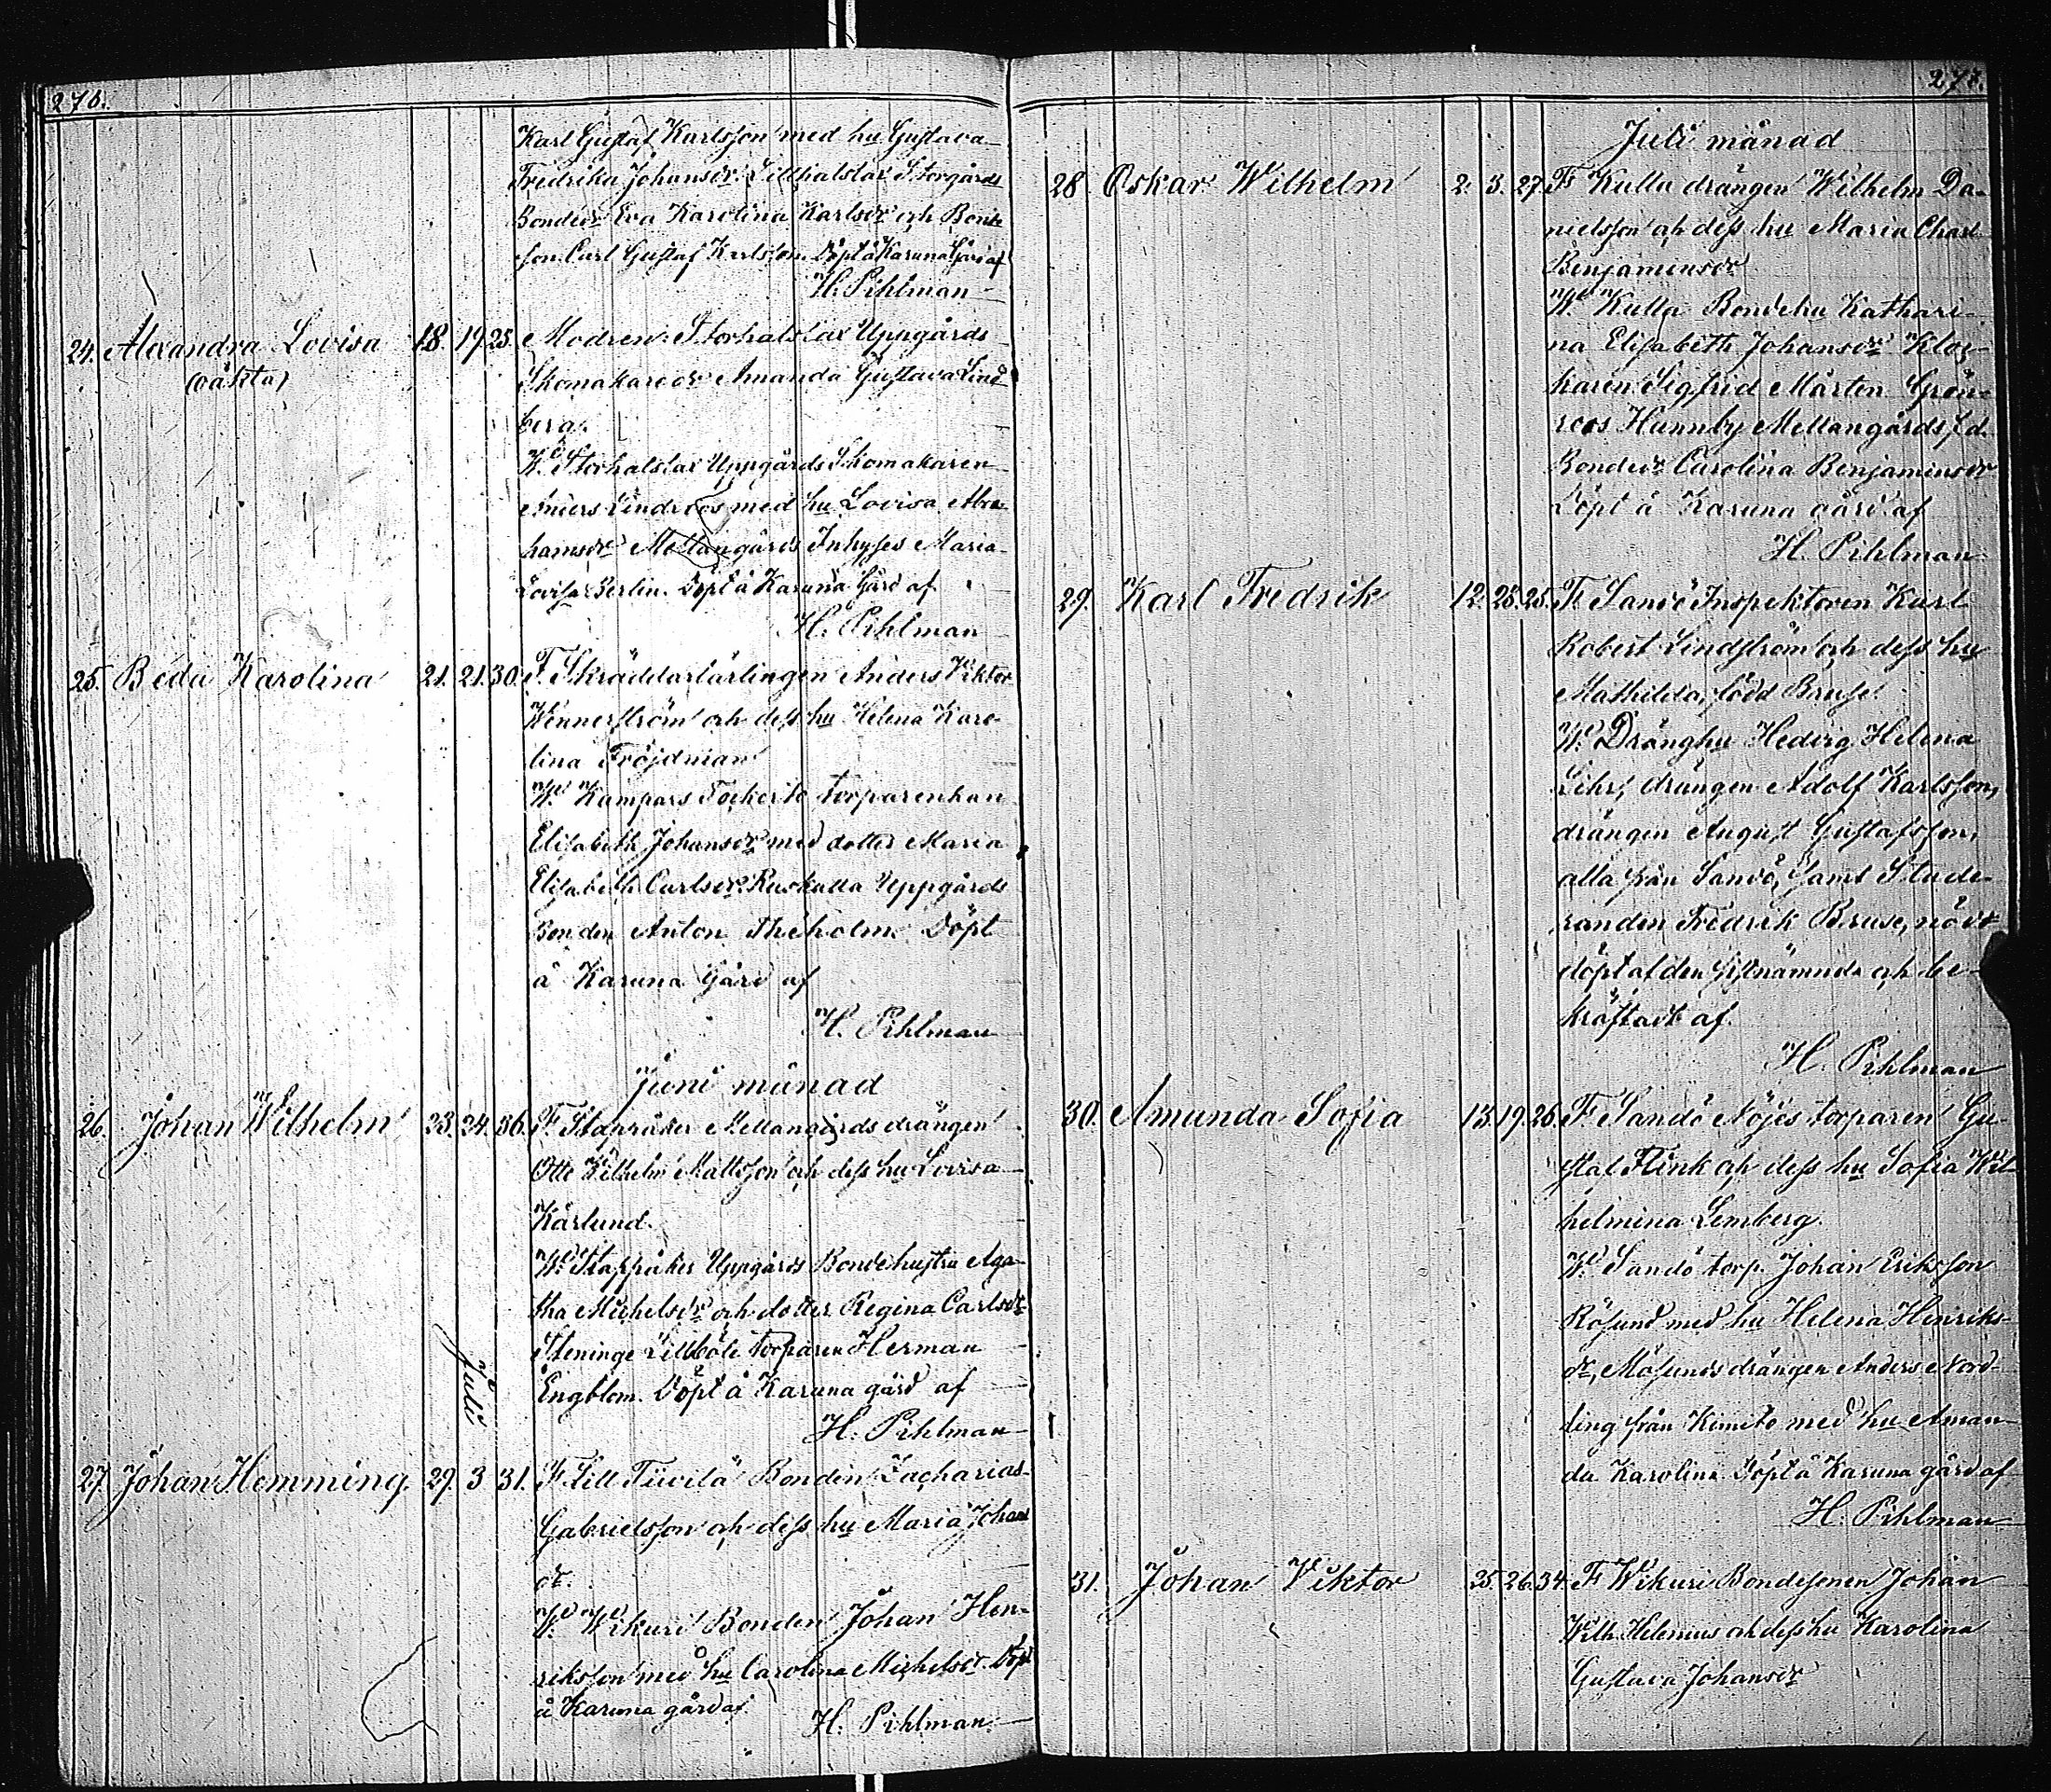 276.
Karl Gustaf Karlsson med hu Gustava
Fredrika Johansdr. Lillhalslax Storgårds
Bondedr Eva Karolina Karlsdr och Bonde
son Carl Gustaf Karlsson. Döpt å Karuna Gård af
H. Pihlman
24. Alexandra Lovisa 18. 19. 25. Modren: Storhalslax Uppgårds
(oäkta) Skomakaredr Amanda Gustava Lind
berg.
W. Storhalslax Uppgårds Skomakaren
Anders Lindroos med hu Lovisa Abra
hamsdr Mellangårds Inhyses Maria
Lovisa Berlin. Döpt å Karuna Gård af
H. Pihlman
25. Beda Karolina 21. 21. 30. F. Skräddarlärlingen Anders Viktor
Wennerström och dess hu Helena Karo-
lina Fröjdman
W. Kampars torparenkan
Elisabeth Johansdr med dotter Maria
Elisabeth Carlsdr Ruskulla Uppgårds
Bonden Anton Döpt
å Karuna Gård af
H. Pihlman
Juni månad
26. Johan Wilhelm 23. 24. 36. F. Stapråker Mellangårds drängen
Otto Wilhelm Mattsson och dess hu Lovisa
Kärlund.
W. Stappåker Uppgårds Bondehustru Aga
tha Michelsdr och dotter Regina Carlsdr
Steninge Lillböle torparen Herman
Engblom. Döpt å Karuna gård af
H. Pihlman
Juli
27. Johan Hemming. 29. 3 31. F. Lill Tiivilä Bonden Zacharias
Gabrielsson och dess hu Maria Johans
dr.
W. Wikuri Bonden Johan Hen-
riksson med hu Carolina Michelsdr. Döpt
å Karuna gård af
H. Pihlman.
277.
Juli månad
28. Oskar Wilhelm 2. 3. 27. F. Kulla drängen Wilhelm Da-
nielsson och dess hu Maria Charl
Benjaminsdr
W. Kulla Bondehu Kathari-
na Elisabeth Johansdr Kloc-
karen Sigfrid Mårten Grön-
roos Hunnby Mellangårds f.d.
Bondedr Carolina Benjaminsdr
Döpt å Karuna gård af
H. Pihlman
29. Karl Fredrik 12. 25. 25. F. Sandö Inspektoren Karl
Robert Lindström och dess hu
Mathilda, född Bruse.
W. Dränghu Hedvig Helena
Lihr, drängen Adolf Karlsson,
drängen August Gustafsson,
alla från Sandö, samt Stude-
randen Fredrik Bruse, nöd-
döpt af den sistnämnda och be-
kräftadt af
H. Pihlman
30. Amanda Sofia 13. 19. 26. F. Sandö Nöjes torparen Gu-
staf Flink och dess hu Sofia Wil
helmina Lemberg.
W. Sandö torp. Johan Eriksson
Rösund med hu Helena Henriks-
dr, Mösunds drängen Anders Nord-
ling från Kimito med hu Aman-
da Karolina Döpt å Karuna gård af
H. Pihlman
31. Johan Viktor 25. 26. 34. F. Wikuri Bondesonen Johan
Wilh. Helenius och dess hu Karolina
Gustava Johansdr